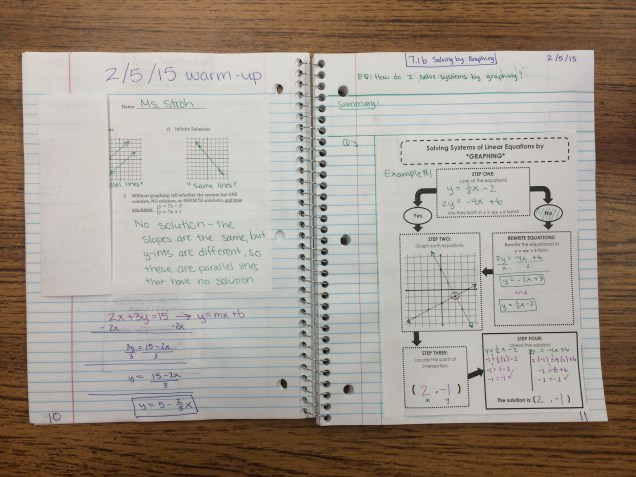 2/5/15 warm-up
Name Ms. Stroh
c) Infinite Solutions
"same lines"
Without graphing, tell whether the system has ONE
solution, NO solution, or INFINITE solutions, and how
you know.
No solution - the
slopes are the same, but
y-ints are different, so
these are parallel lines
that have no solution
2x+3y=15 → y=mx+b
-2x -2x
3y = 15-2x
3 3
y = 15-2x
3
y = 5 - 2/3 x
10
7.1b Solving by Graphing
2/5/15
EQ: How do I solve systems by graphing?
Summary:
Q's
Solving Systems of Linear Equations by
*GRAPHING*
Example #1
STEP ONE:
Look at the equations!
y = 1/2 x - 2
2y = -4x + 6
Are they both in y = mx + b form?
Yes
No
STEP TWO:
Graph both equations.
REWRITE EQUATIONS:
Rewrite the equation(s) in
y = mx + b form.
2y = -4x + 6
2 2
y = -2x + 3
and
y = 1/2 x - 2
STEP THREE:
Locate the point of
intersection.
( 2 , -1 )
x y
STEP FOUR:
Check the solution!
y = 1/2 x - 2 2y = -4x + 6
-1 = 1/2(2) - 2 2(-1) = -4(2) + 6
-1 = 1 - 2 -2 = -8 + 6
-1 = -1 ✓ -2 = -2 ✓
The solution is: (2, -1)
11